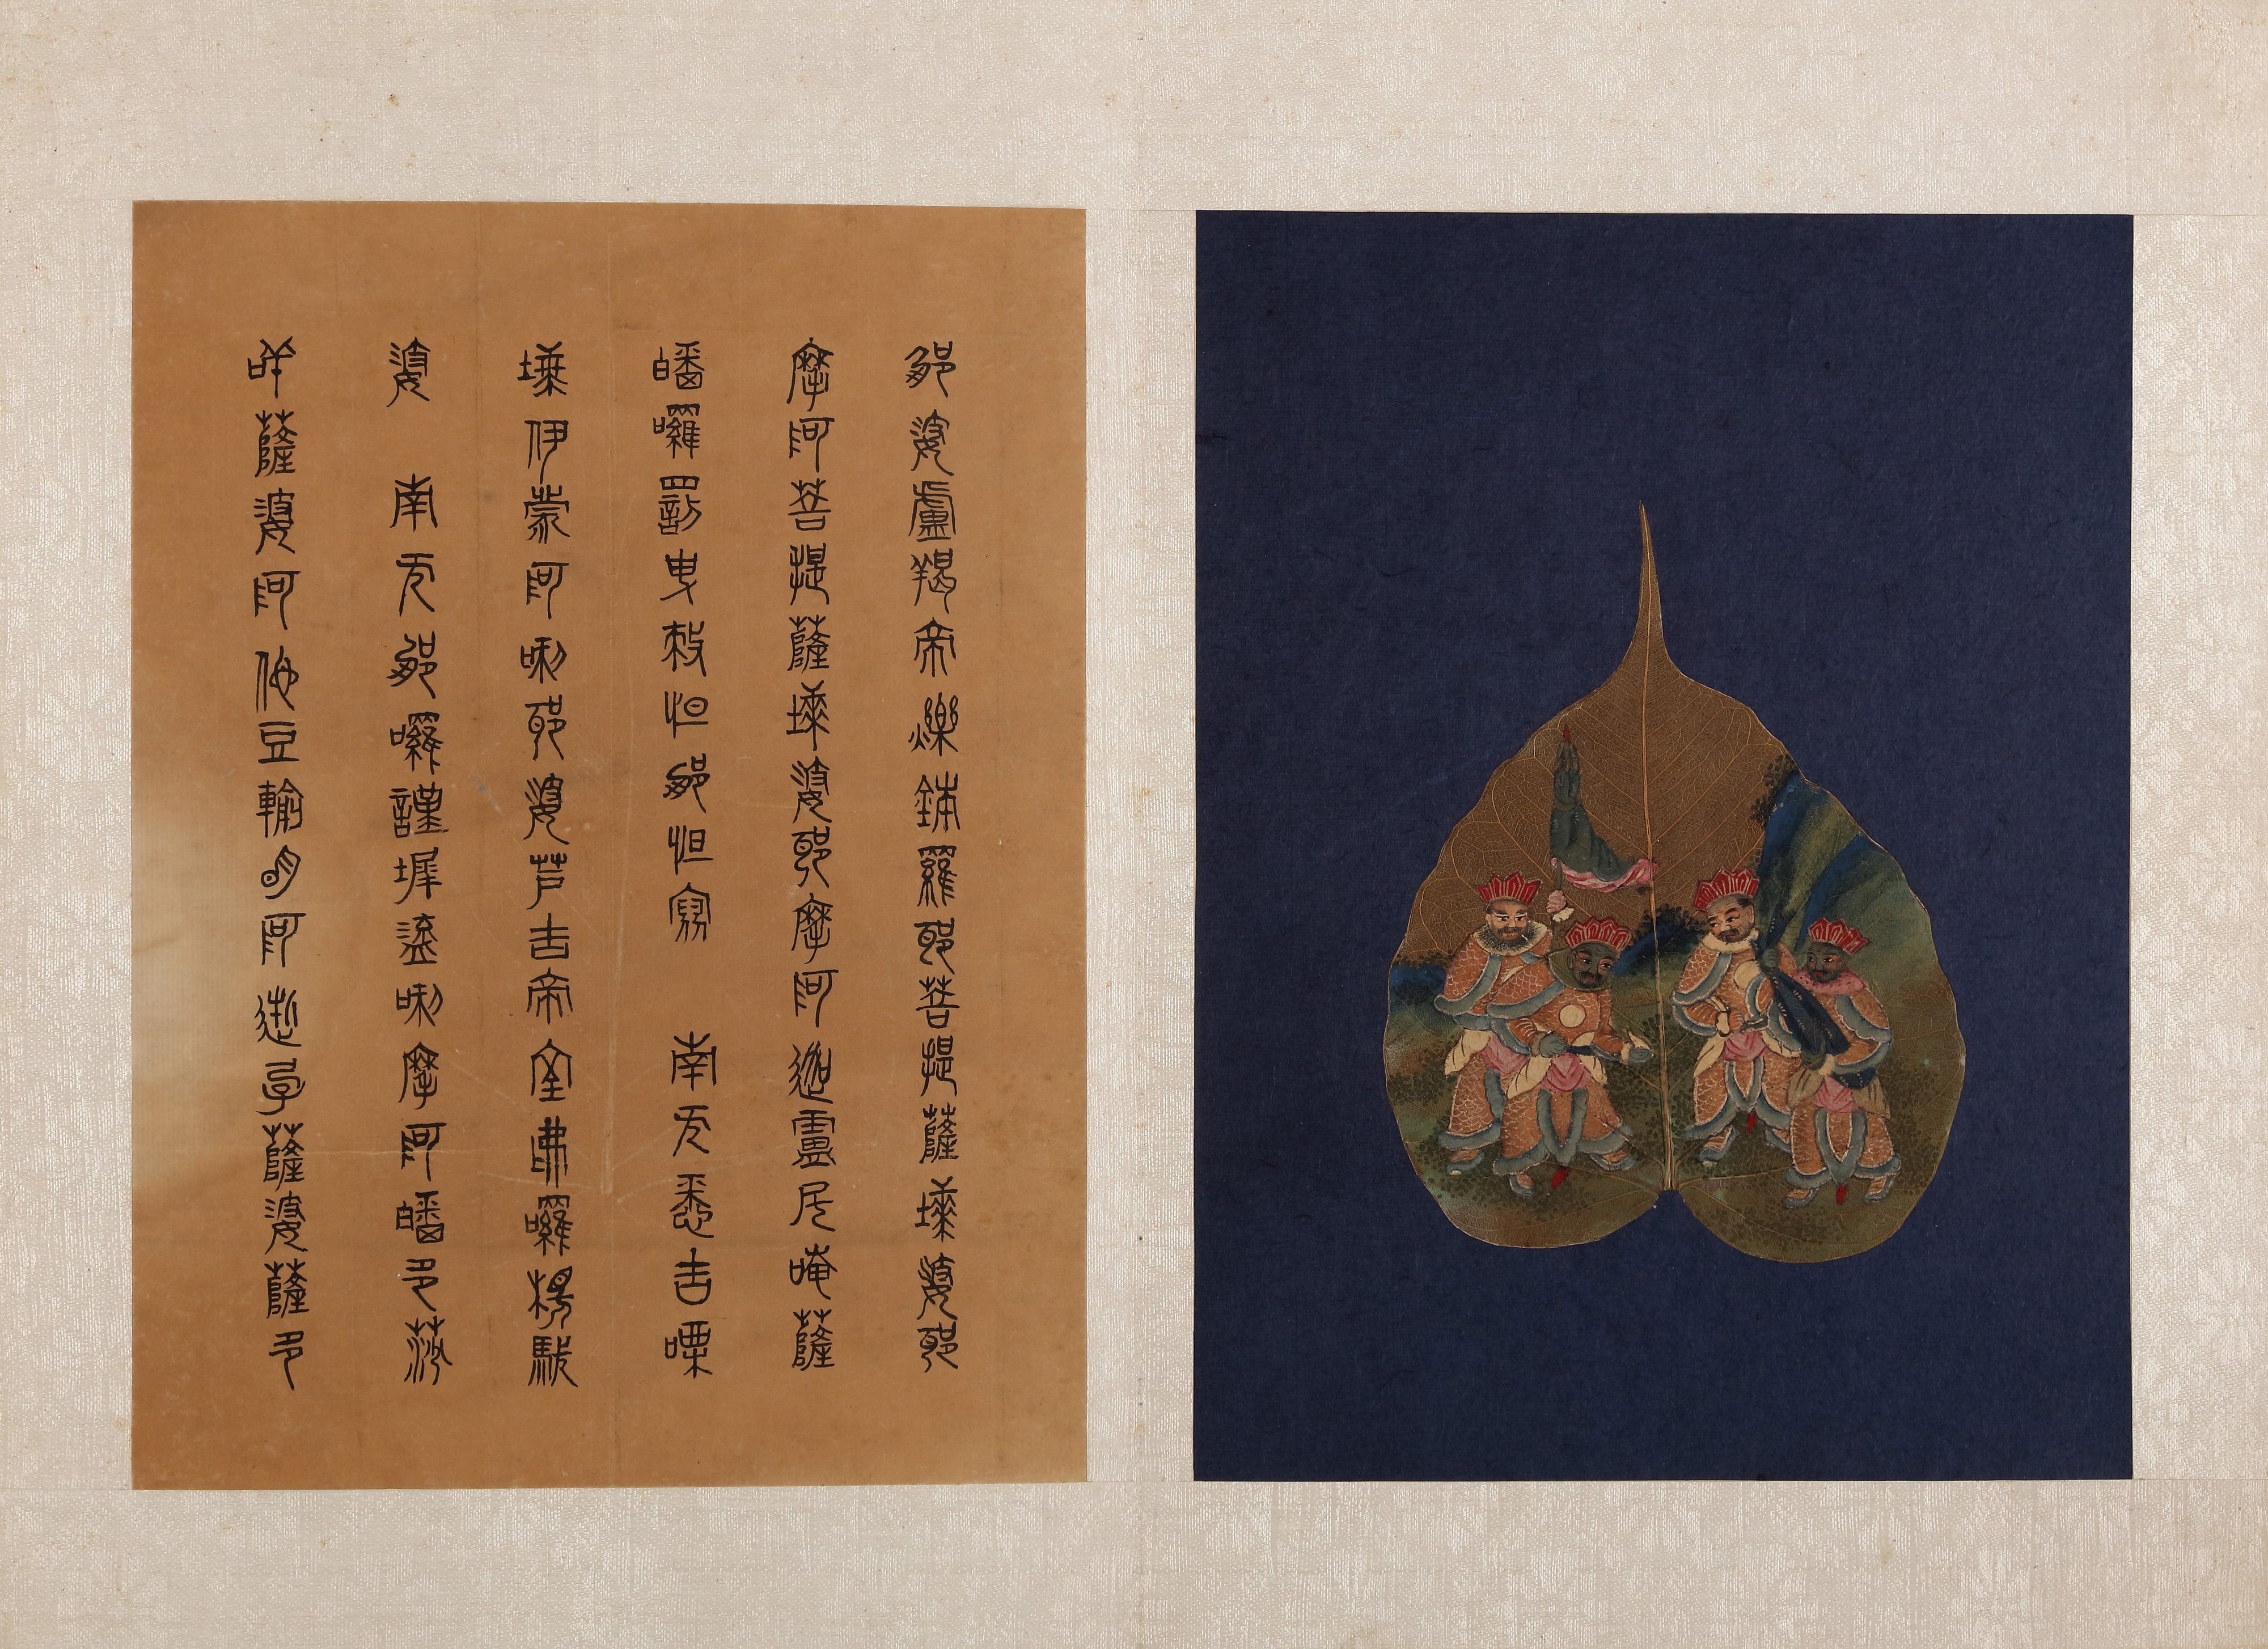 那婆盧羯帝爍鉢羅耶菩提薩埵婆耶
摩阿菩提薩埵婆耶摩阿迦盧尼唵薩
皤囉罰曳殺怛那怛寫　南无悉吉㗚
埵伊蒙阿唎耶婆芦吉帝室弗囉楞馱
婆　南无那囉謹墀醯唎摩阿皤多莎
咩薩婆阿他豆輸朋阿逝孕薩婆薩多